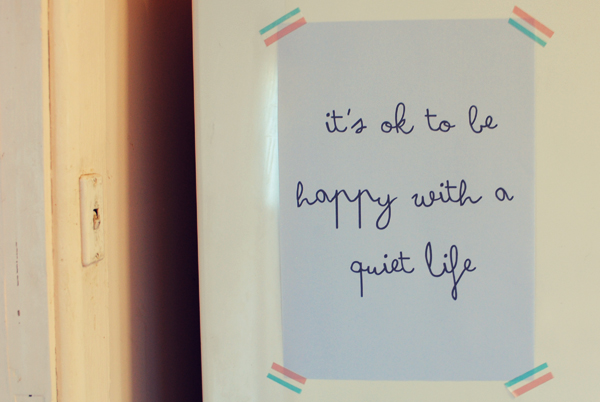 it's ok to be
happy with a
quiet life